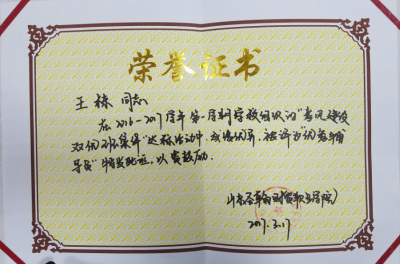 荣誉证书
王栋 同志
在2016-2017学年第一学期学校组织的"学风建设
双优团队集体"达标活动中,成绩优异,被评为"优秀辅
导员"特发此证,以资鼓励。
山东圣翰财贸职业学院
2017.3.17